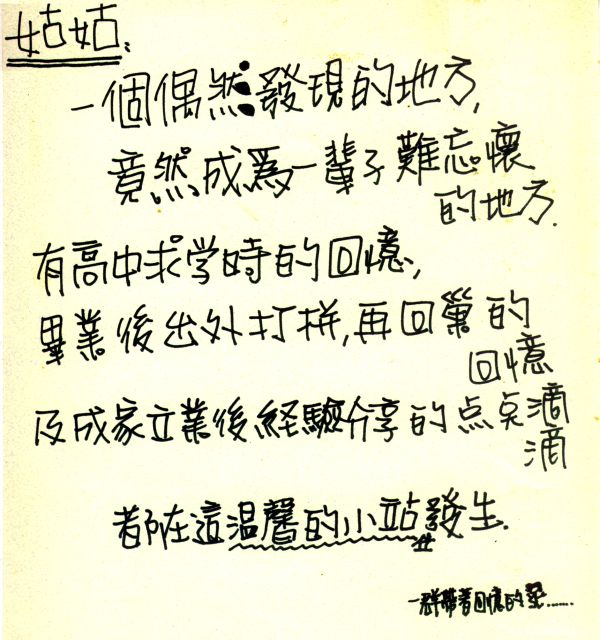 姑姑:
一個偶然發現的地方,
竟然成為一輩子難忘懷
的地方.
有高中求学時的回憶,
畢業後出外打拼,再回巢的
回憶
及成家立業後経驗分享的点点滴
滴
都在這温馨的小站發生.
一群帶著回憶的......